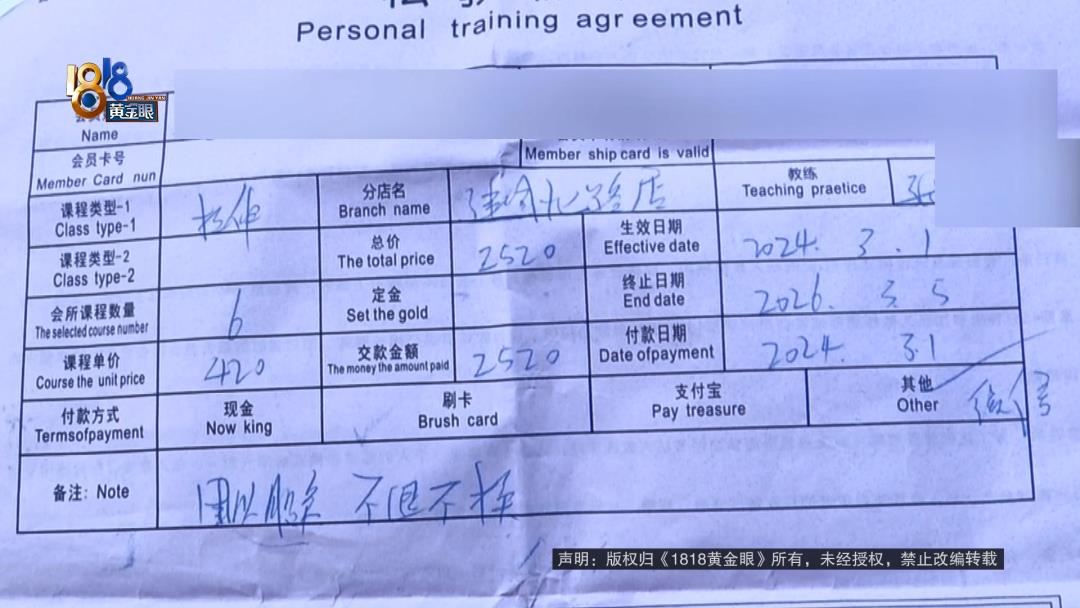 Personal training agreement
1818
黄金眼
Name
会员卡号
Member Card nun
Member ship card is valid
课程类型-1
Class type-1
拉伸
分店名
Branch name
路店
教练
Teaching praetice
课程类型-2
Class type-2
总价
The total price
2520
生效日期
Effective date
2024. 3. 1
会所课程数量
The selected course number
6
定金
Set the gold
终止日期
End date
2026. 3. 5
课程单价
Course the unit price
420
交款金额
The money the amount paid
2520
付款日期
Date ofpayment
2024. 3.1
付款方式
Termsofpayment
现金
Now king
刷卡
Brush card
支付宝
Pay treasure
其他
Other
微信
备注: Note
不退不转
声明:版权归《1818黄金眼》所有,未经授权,禁止改编转载